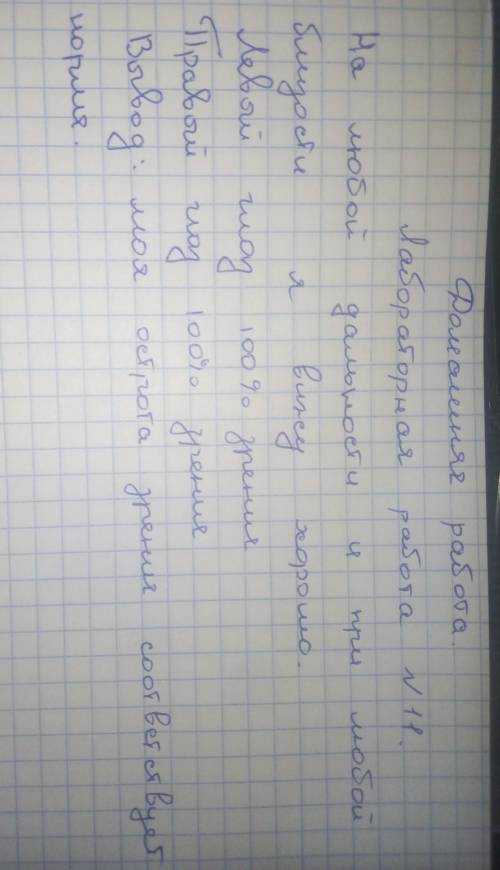 Домашняя работа.
Лабораторная работа N 11.
На любой дальности и при любой
близости я вижу хорошо.
Левый глаз 100% зрения
Правый глаз 100% зрения
Вывод: моя острота зрения соответствует
норма.